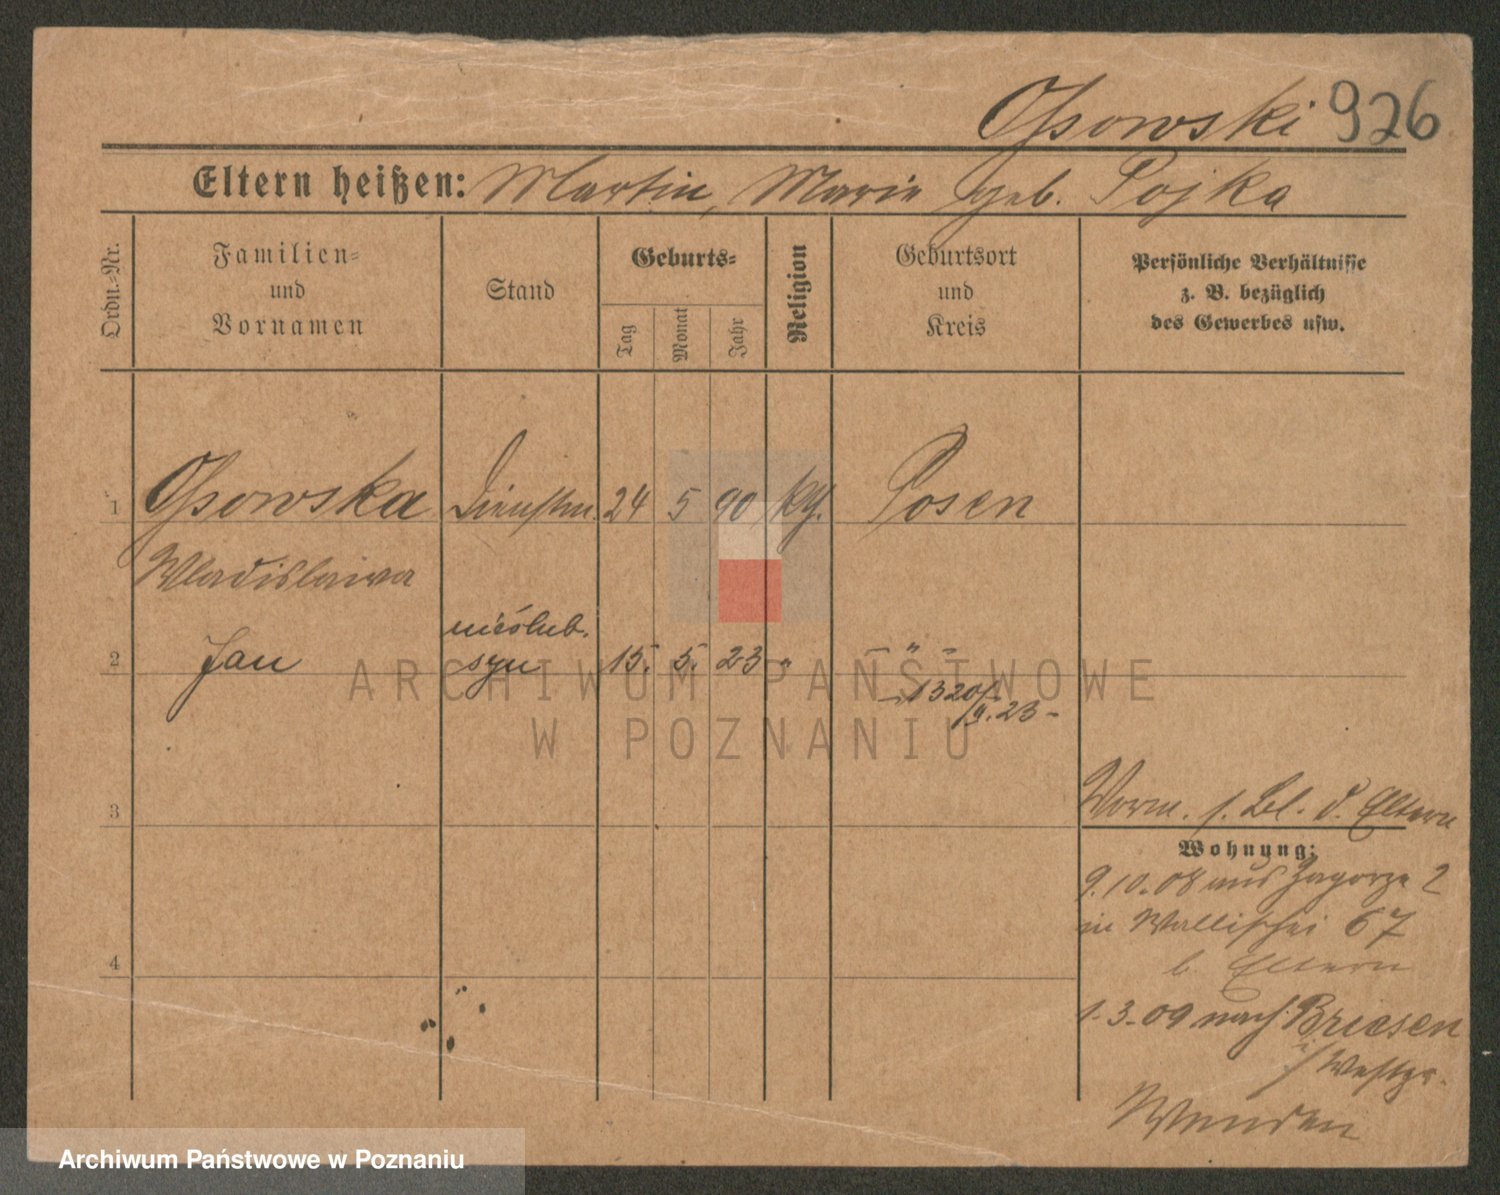 Ossowski 926
Eltern heißen: Martin, Marie geb. Pojka
Ordn.-Nr.
Familien-
und
Vornamen
Stand
Geburts-
Tag
Monat
Jahr
Religion
Geburtsort
und
Kreis
Persönliche Verhältnisse
z. B. bezüglich
des Gewerbes usw.
1 Ossowska Dienstm. 24 5 90 kth. Posen
Wladislawa
nieślub.
2 Jan syn 15. 5. 23 " - " -
- 1320/
9.23 -
3
Vorm. s. Bl. d. Eltern
Wohnung:
9.10.08 aus Zagorze 2
in Wallischei 67
b. Eltern
4
1.3.09 nach Briesen
i/ Westpr.
ARCHIWUM PAŃSTWOWE
W POZNANIU
Archiwum Państwowe w Poznaniu